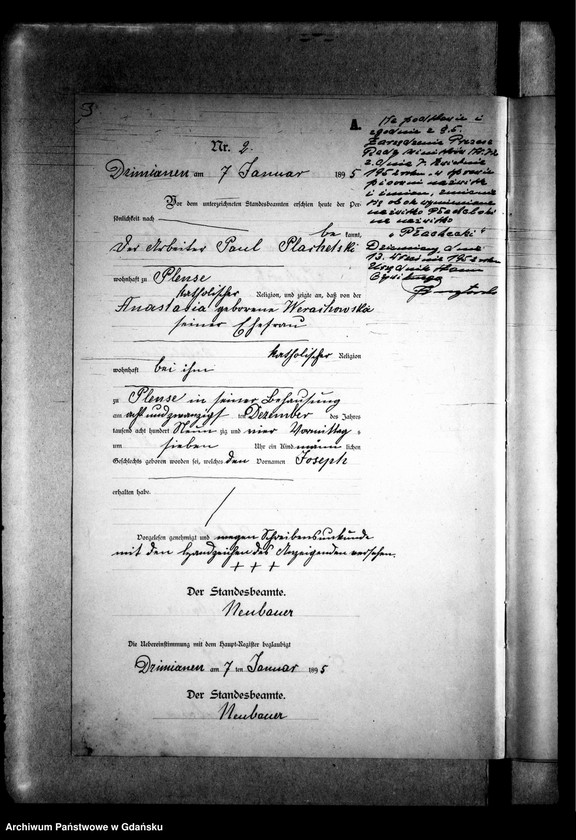 3
A.
Nr. 2.
Drimianen am 7 Januar 1895
Vor dem unterzeichneten Standesbeamten erschien heute der Per-
sönlichkeit nach
be kannt,
der Arbeiter Paul Plachetski
wohnhaft zu Plense
katholischer Religion, und zeigte an, daß von der
Anastasia geborene
seiner Ehefrau
katholischer Religion
wohnhaft bei ihm
zu Plense in seiner Behausung
am acht und zwanzigsten Dezember des Jahres
tausend acht hundert Neun zig und vier Vormittag s
um sieben Uhr ein Kind männ lichen
Geschlechts geboren worden sei, welches den Vornamen Joseph
erhalten habe.
Vorgelesen genehmigt und wegen Schreibensunkunde
mit den Handzeichen des Anzeigenden versehen.
+ + +
Der Standesbeamte.
Neubauer
Die Uebereinstimmung mit dem Haupt-Register beglaubigt
Drimianen am 7 ten Januar 1895
Der Standesbeamte.
Neubauer
Na podstawie i
zgodnie z § 5.
Zarządzenia Prezesa
Rady Ministrów
z dnia 7. kwietnia
1952 roku w sprawie
pisowni nazwisk
i imion, zmienia
się obok wymienione
nazwisko
na nazwisko
Dzimiany, dnia
13. 1952 roku
Urzędnik stanu
Cywilnego
Archiwum Państwowe w Gdańsku